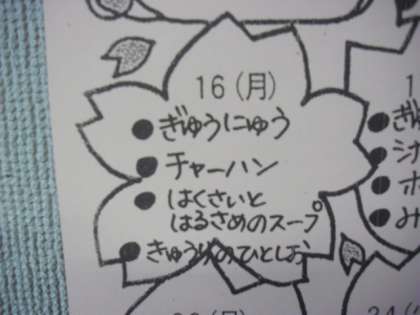 16(月)
●ぎゅうにゅう
●チャーハン
●はくさいと
はるさめのスープ
●きゅうりのひとしお